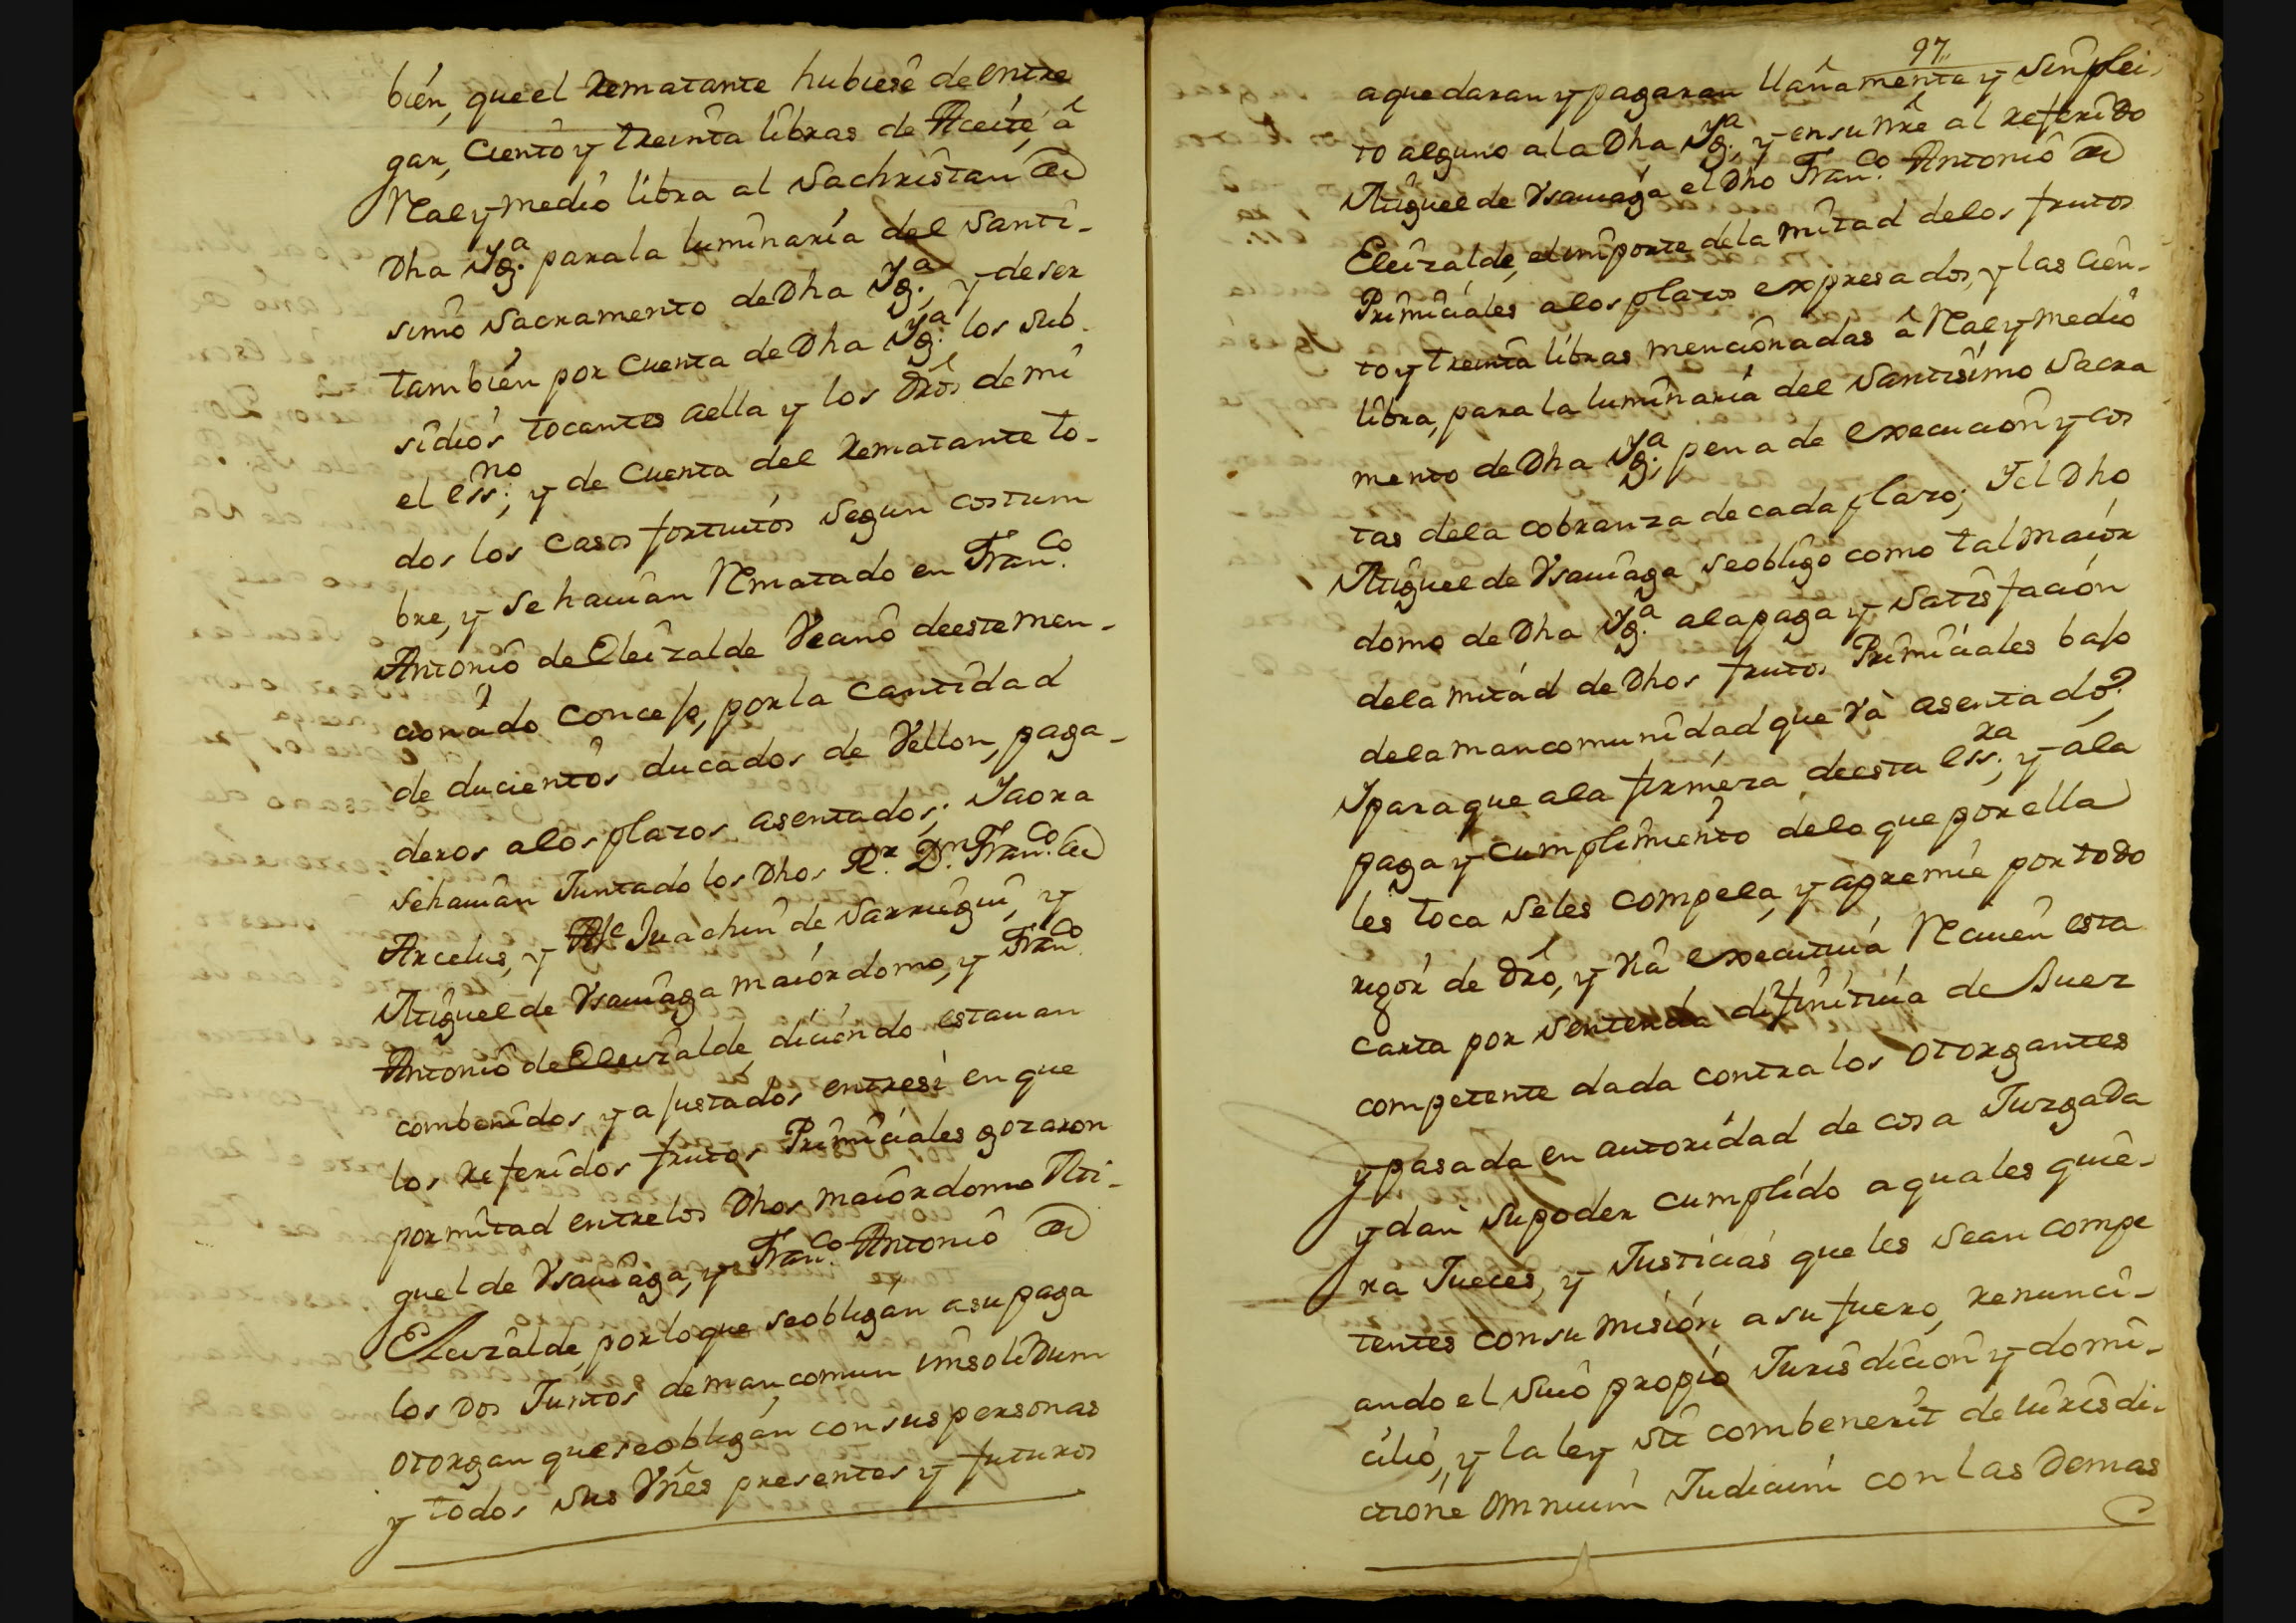 bien, que el Rematante hubiese de entre
gar, Ciento y treinta libras de Aceite, â
Real y medio libra al Sachristan de
Dha Yg.ª para la luminaria del Santi-
simo Sacramento de Dha Yg.ª, y de ser
tambien por Cuenta de Dha Yg.ª los Sub-
sidios tocantes a ella y los Dros de mi
el ess.no; y de Cuenta del Rematante to-
dos los casos fortuitos Segun costum
bre, y se hauian Rematado en Fran.co
Antonio de Eleizalde Veano de este men-
cionado Concejo, por la Cantidad
de ducientos ducados de Vellon, paga-
deros a los plazos asentados; Y aora
se hauian Juntado los Dhos R.r D.n Fran.co de
Arcelus, y Alc Juachin de Sarruegui, y
Miguel de Ysauiaga maiordomo, y Fran.co
Antonio de Eleizalde, diciendo estauan
combenidos y ajustados entresi en que
los referidos frutos Primiciales gozaron
por mitad entre los Dhos maiordomo Mi-
guel de Ysauiaga, y Fran.co Antonio de
Eleizalde, por lo que se obligan a su paga
los dos Juntos de man comun insolidum
otorgan que se obligan con sus personas
y todos sus Vnês presentes y futuros
97
a que daran y pagaran llanamente y sin plei-
to alguno a la Dha Yg.ª, y en su nre al referido
Miguel de Ysauiaga el Dho Fran.co Antonio de
Eleizalde, el importe de la mitad de los frutos
Primiciales a los plazos expresados, y las Cien-
to y treinta libras mencionadas â Real y medio
libra, para la luminaria del Santisimo Sacra
mento de Dha Yg.ª, pena de execucion y cos
tas de la cobranza de cada plazo; Y el Dho
Miguel de Ysauiaga se obligo como tal maior
domo de Dha Yg.ª a la paga y satisfacion
de la mitad de Dhos frutos Primiciales bajo
de la mancomunidad que vâ asentado?
Y para que a la firmeza de esta ess.ra, y a la
paga y cumplimiento de lo que por ella
les toca se les compela, y apremie por todo
rigor de Dro, y vîa executiua Reciuen esta
carta por sentencia difinitiua de Juez
competente dada contra los otorgantes
y pasada en autoridad de cosa Juzgada
y dan su poder cumplido a quales quie-
ra Jueces, y Justicias que les sean compe
tentes con su mision a su fuero, renunci-
ando el suio propio Jurisdicion y domi-
cilio, y la ley sit combenerit de iurisdi-
ctione omnium Judicum con las demas